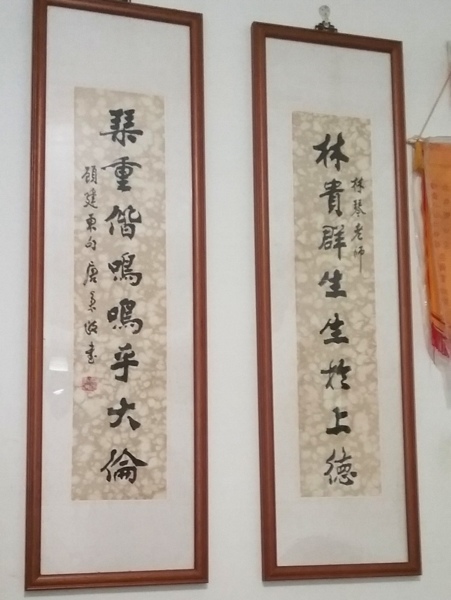 林琴老師
林貴群生生於上德
琹重偕鳴鳴乎大倫
顧建東句唐書